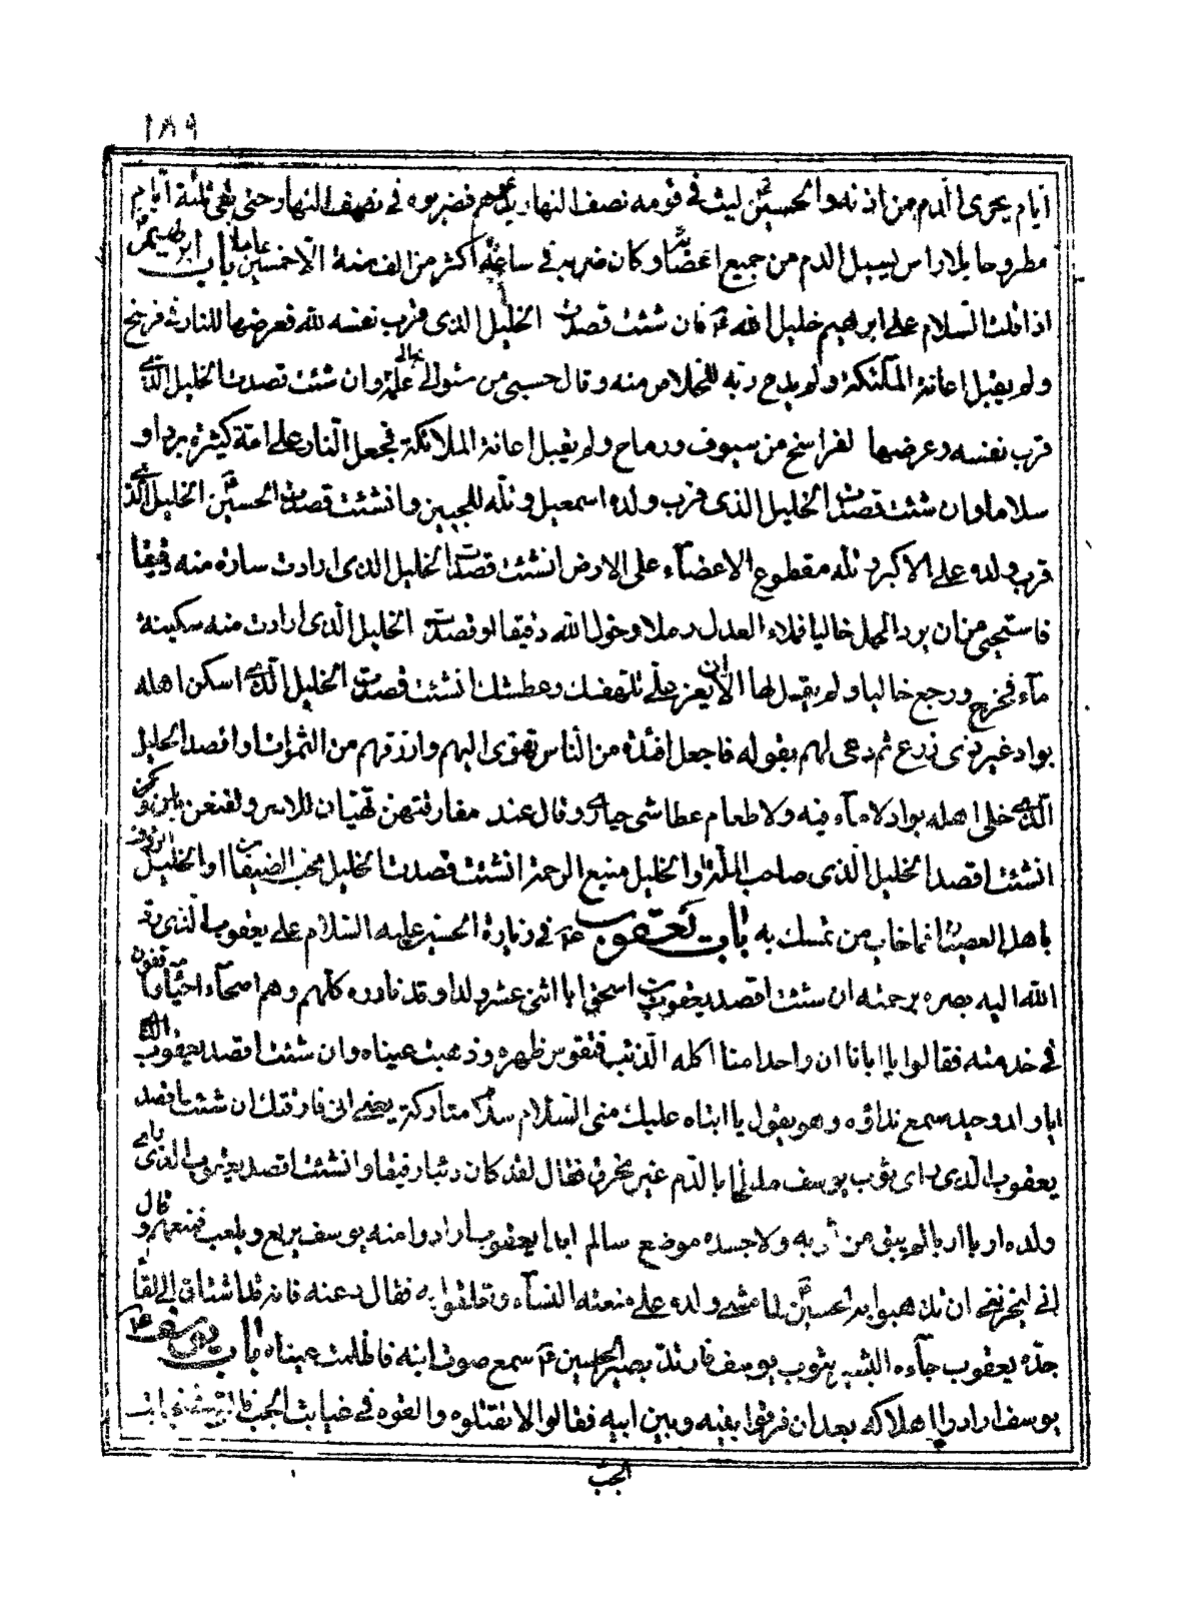 ١٨٩
ايام يجرى الدم من اذنه والحسين لبث في قومه نصف النهار يدعوهم فضربوه في نصف النهار حتى بقى ثلثة ايام
مطروحا بلا راس يسيل الدم من جميع اعضائه وكان ضربه في ساعة اكثر من الف منة الا خمسين عاما باب ابرهيم
اذا قلت السلام على ابرهيم خليل الله فان شئت قصدت الخليل الذى قرب نفسه لله فعرضها للنار في فرسخ
ولم يقبل اعانة الملئكة ولم يدع ربه للخلاص منه وقال حسبى من سئوالى علمه بحالى وان شئت قصدت الخليل الذى
قرب نفسه وعرضها لفراسخ من سيوف ورماح ولم يقبل اعانة الملائكة فجعل النار على امة كثيرة بردا و
سلاما وان شئت قصدت الخليل الذى قرب ولده اسمعيل وتله للجبين وانشئت قصدت الحسين الخليل الذى
قرب ولده على الاكبر وتله مقطوع الاعضاء على الارض انشئت قصدت الخليل الذى ارادت سارة منه دقيقا
فاستحيى من ان يرد الحمل خاليا فملاء العدل رملا وحول الله دقيقا او قصدت الخليل الذى ارادت منه سكينة
ماء فخرج ورجع خاليا ولم يقبل لها الا ان يعز على تلهفك وعطشك انشئت قصدت الخليل الذى اسكن اهله
بواد غير ذى زرع ثم دعى لهم بقوله فاجعل افئدة من الناس تهوى اليهم وارزقهم من الثمرات او اقصد الخليل
الذى خلى اهله بواد لا ماء فيه ولا طعام عطاشى حيارى وقال عند مفارقتهن تهيئان للاسر ولقنعن
انشئت اقصد الخليل الذى صاحب الملة او الخليل منبع الرحمة انشئت قصدت الخليل محب الضيفان او الخليل
باهل العصيان ما خاب من تمسك به باب يعقوب في زيارة الحسين عليه السلام على يعقوب الذى رد
الله اليه بصره برحمته ان شئت اقصد يعقوب بن اسحق ابا اثنى عشر ولدا وقد فاوره كلهم وهم اصحاء احياء
في خدمته فقالوا يا ابانا ان واحدا منا اكله الذئب فتقوس ظهره وذهبت عيناه وان شئت اقصد يعقوب الذى
ابا ولد وحيد سمع نداؤه وهو يقول يا ابتاه عليك منى السلام سلام متاركة يعنى انى فارقتك ان شئت فاقصد
يعقوب الذى راى ثوب يوسف ملطخا بالدم غير مخرق فقال لقد كان ذئبا رفيقا وانشئت اقصد يعقوب الذى راى
ولده اربا اربا لم يبق من ثوبه ولا جسده موضع سالم ابدا يعقوب ارادوا منه يوسف يرتع ويلعب فمنعهم وقال
انى ليحزننى ان تذهبوا به الحسين لما مشى ولده على منعته النساء وتعلقوا به فقال دعنه فانه قد اشتاق الى لقاء
جده يعقوب جاءه البشير بثوب يوسف فارتد بصيرا الحسين سمع صوت ابنه فاظلمت عيناه باب يوسف
يوسف ارادوا اهلاكه بعد ان فرقوا بينه وبين ابيه فقالوا لا تقتلوه والقوه في غيابت الجب فالقى في غيابت
الجب